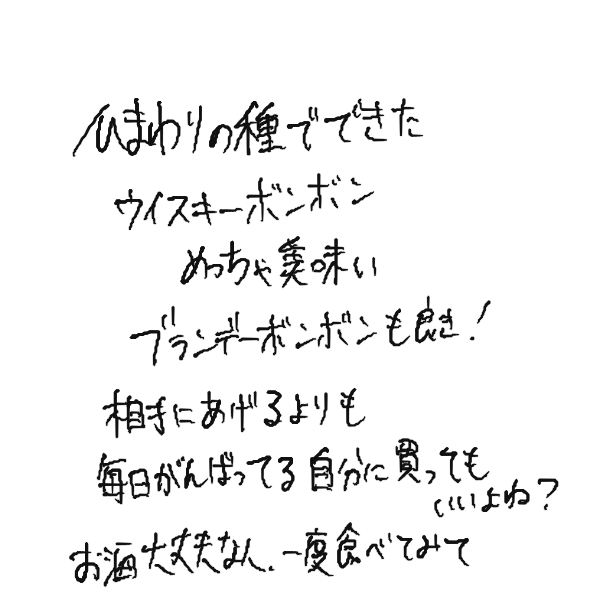 ひまわりの種でできた
ウイスキーボンボン
めっちゃ美味い
ブランデーボンボンも良き!
相手にあげるよりも
毎日がんばってる自分に買っても
いいよね?
お酒大丈夫な人、一度食べてみて